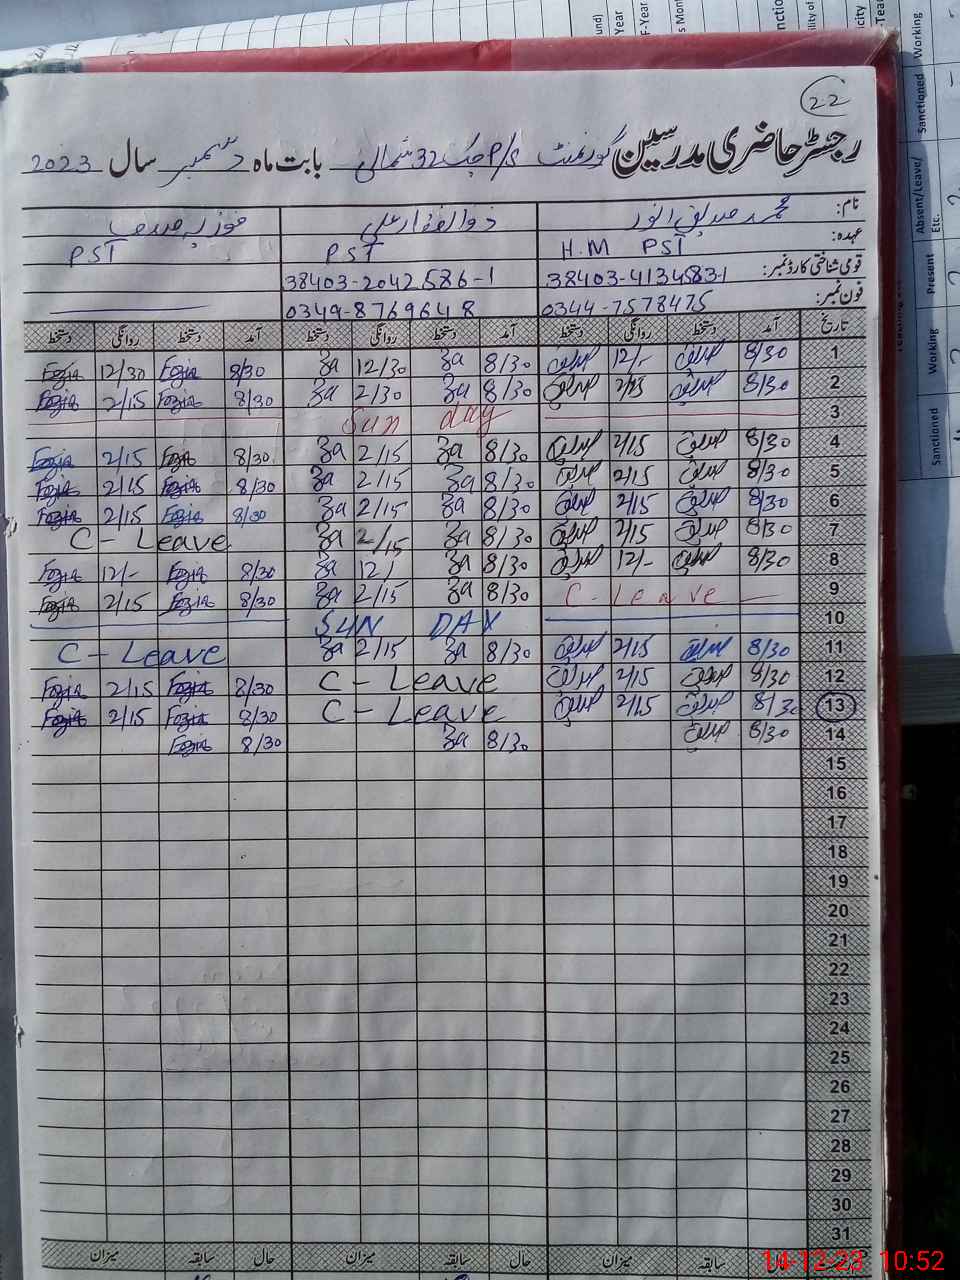 22
رجسٹر حاضری مدرسین گورنمنٹ P/S چک 32 شمالی بابت ماہ دسمبر سال 2023
نام: محمد صدیق انور ذوالفقار علی فوزیہ
عہدہ: H.M PST PST PST
قومی شناختی کارڈ نمبر: 38403-4134583-1 38403-2042586-1
فون نمبر: 0344-7578475 0349-8769648
تاریخ آمد دستخط روانگی دستخط آمد دستخط روانگی دستخط آمد دستخط روانگی دستخط
1 8/30 صدیق 12/- صدیق 8/30 Za 12/30 Za 8/30 Fozia 12/30 Fozia
2 8/30 صدیق 2/15 صدیق 8/30 Za 2/30 Za 8/30 Fozia 2/15 Fozia
3 Sun day
4 8/30 صدیق 2/15 صدیق 8/30 Za 2/15 Za 8/30 Fozia 2/15 Fozia
5 8/30 صدیق 2/15 صدیق 8/30 Za 2/15 Za 8/30 Fozia 2/15 Fozia
6 8/30 صدیق 2/15 صدیق 8/30 Za 2/15 Za 8/30 Fozia 2/15 Fozia
7 8/30 صدیق 2/15 صدیق 8/30 Za 2/15 Za C - Leave
8 8/30 صدیق 12/- صدیق 8/30 Za 12/ Za 8/30 Fozia 12/- Fozia
9 C - Leave 8/30 Za 2/15 Za 8/30 Fozia 2/15 Fozia
10 SUN DAY
11 8/30 صدیق 2/15 صدیق 8/30 Za 2/15 Za C - Leave
12 8/30 صدیق 2/15 صدیق C - Leave 8/30 Fozia 2/15 Fozia
13 8/30 صدیق 2/15 صدیق C - Leave 8/30 Fozia 2/15 Fozia
14 8/30 صدیق 8/30 Za 8/30 Fozia
15
16
17
18
19
20
21
22
23
24
25
26
27
28
29
30
31
حال سابقہ میزان حال سابقہ میزان حال سابقہ میزان
14-12-23 10:52
Sanctioned Working
Absent/Leave/ Etc.
Present
Working
Sanctioned
Year
F-Year